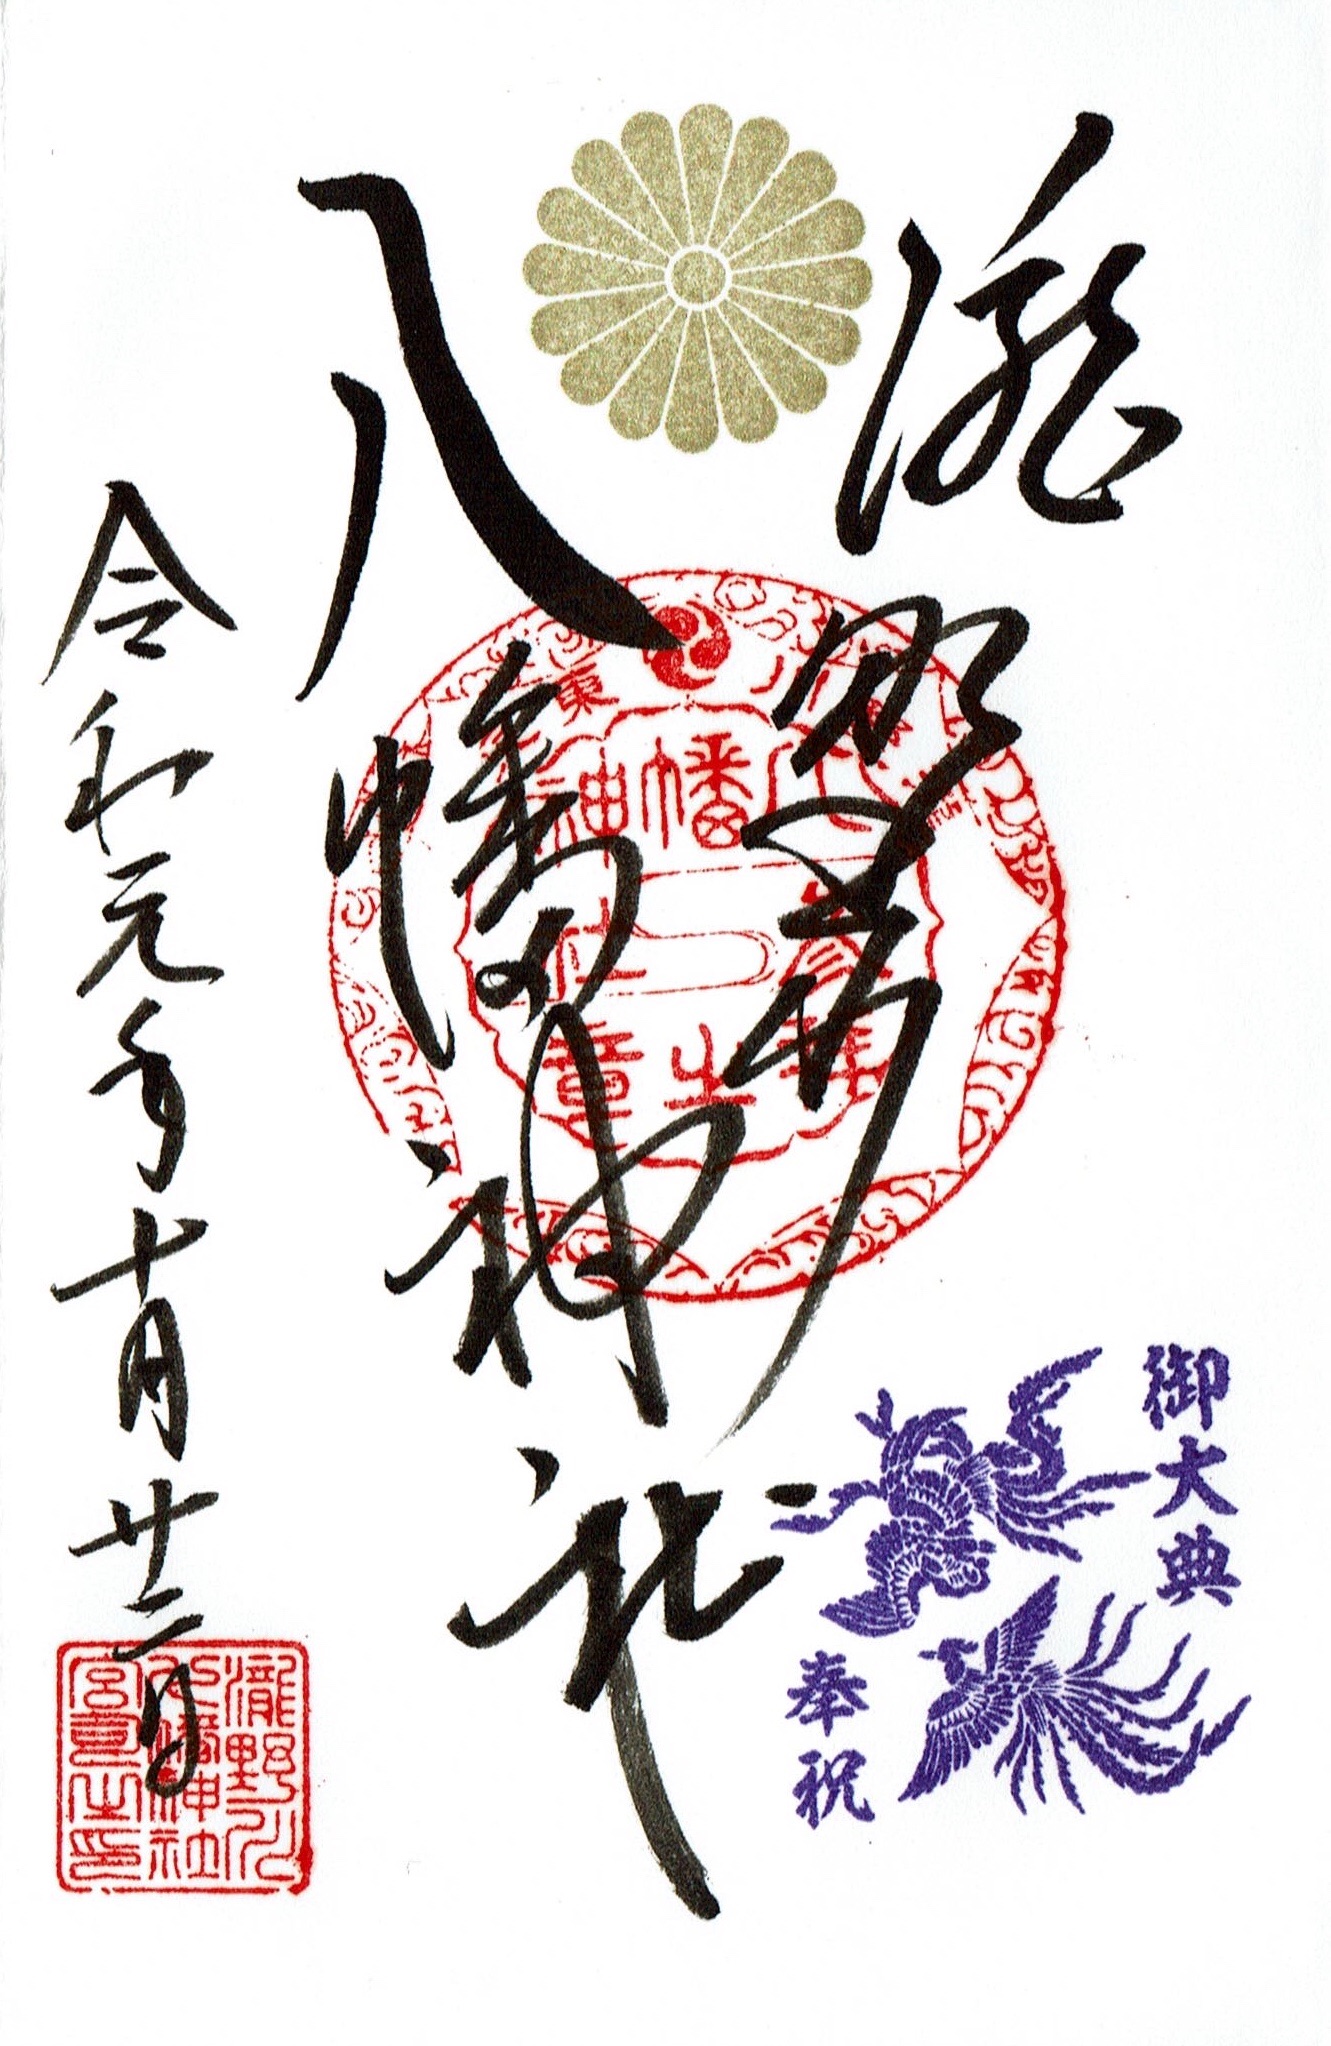 瀧野川
八幡神社
令和元年十月廿二日
御大典
奉祝
瀧野川
八幡神社